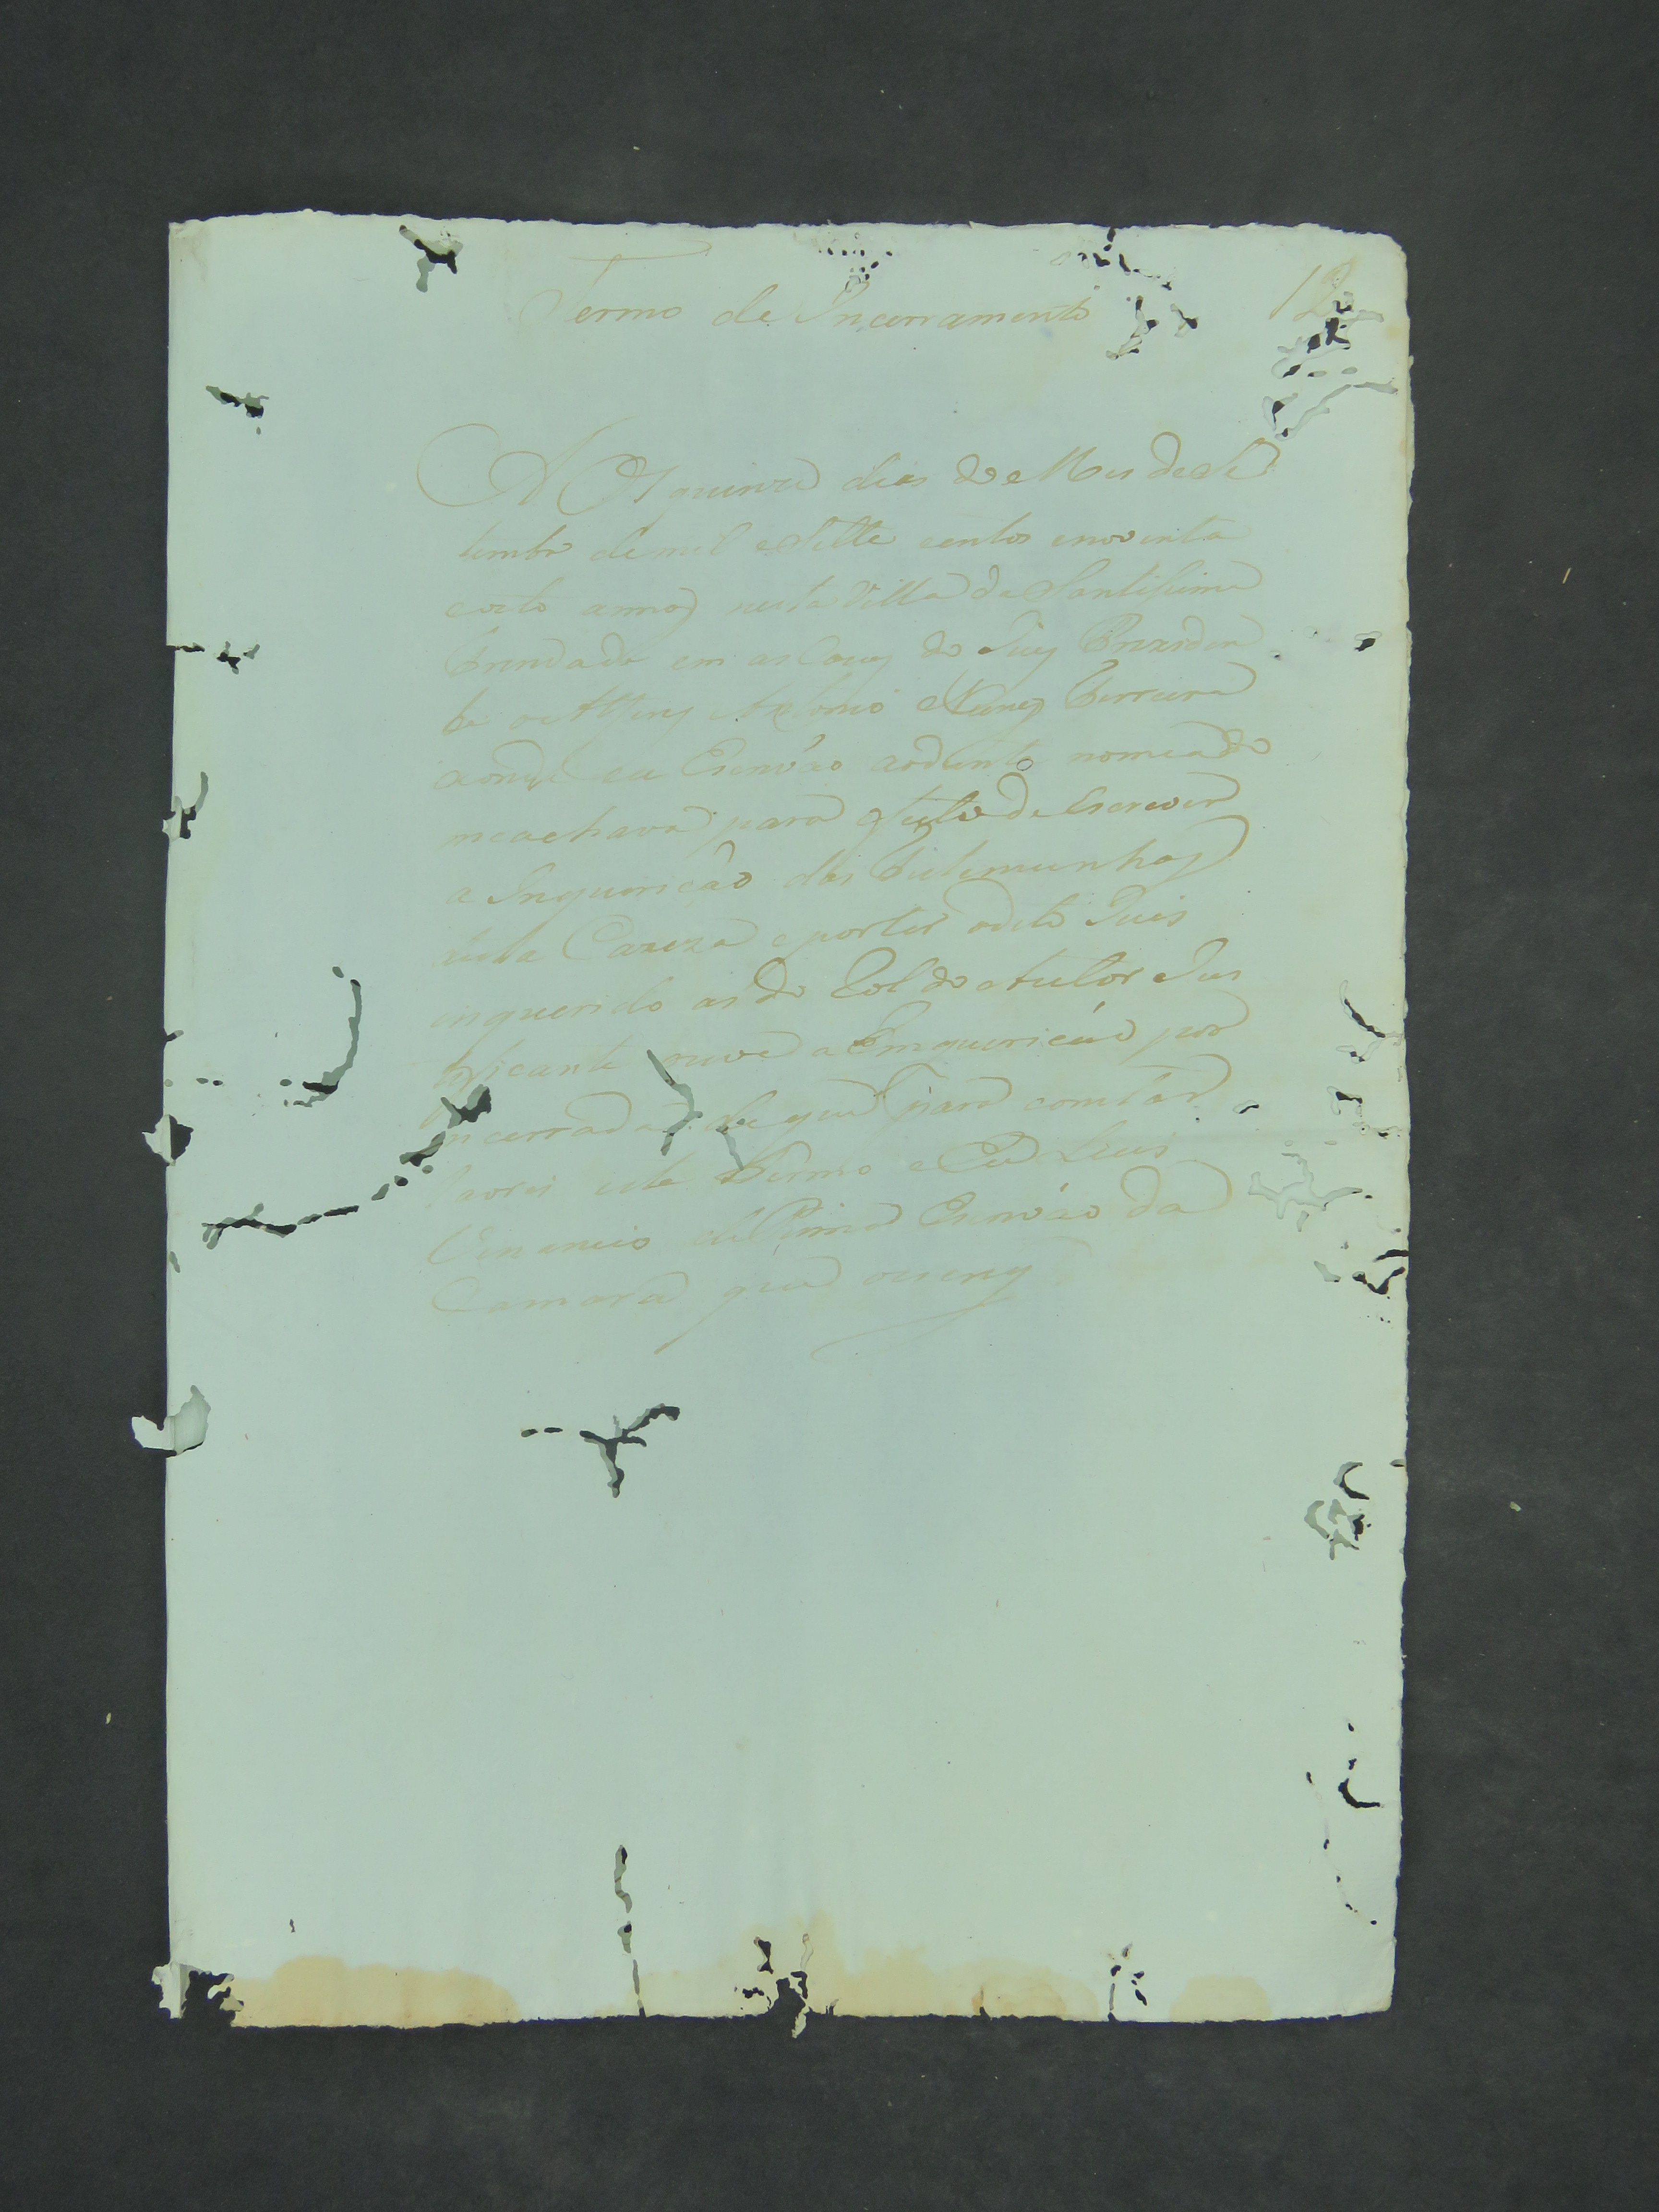 Termo de Incerramento
12
AOs quinze dias do Mes de Se
tembro de mil e Sette centos enoventa
eoito annos nesta Villa da Santissima
Trindade em as Cazas do Juiz Preziden
te o Alferes Antonio Nunes Ferreira
aonde eu Escrivão aodiante nomeado
meachava para de Escrever
a Inquirição das Testemunhas
desta Cauza e por ter odito Juis
inquerido as do Rol do Autor Jus
tificante ouve a Emquirição por
incerrada de que para constar
lavrei este Termo e Eu Luis
Venancio Escrivão da
Camara que oescrevy